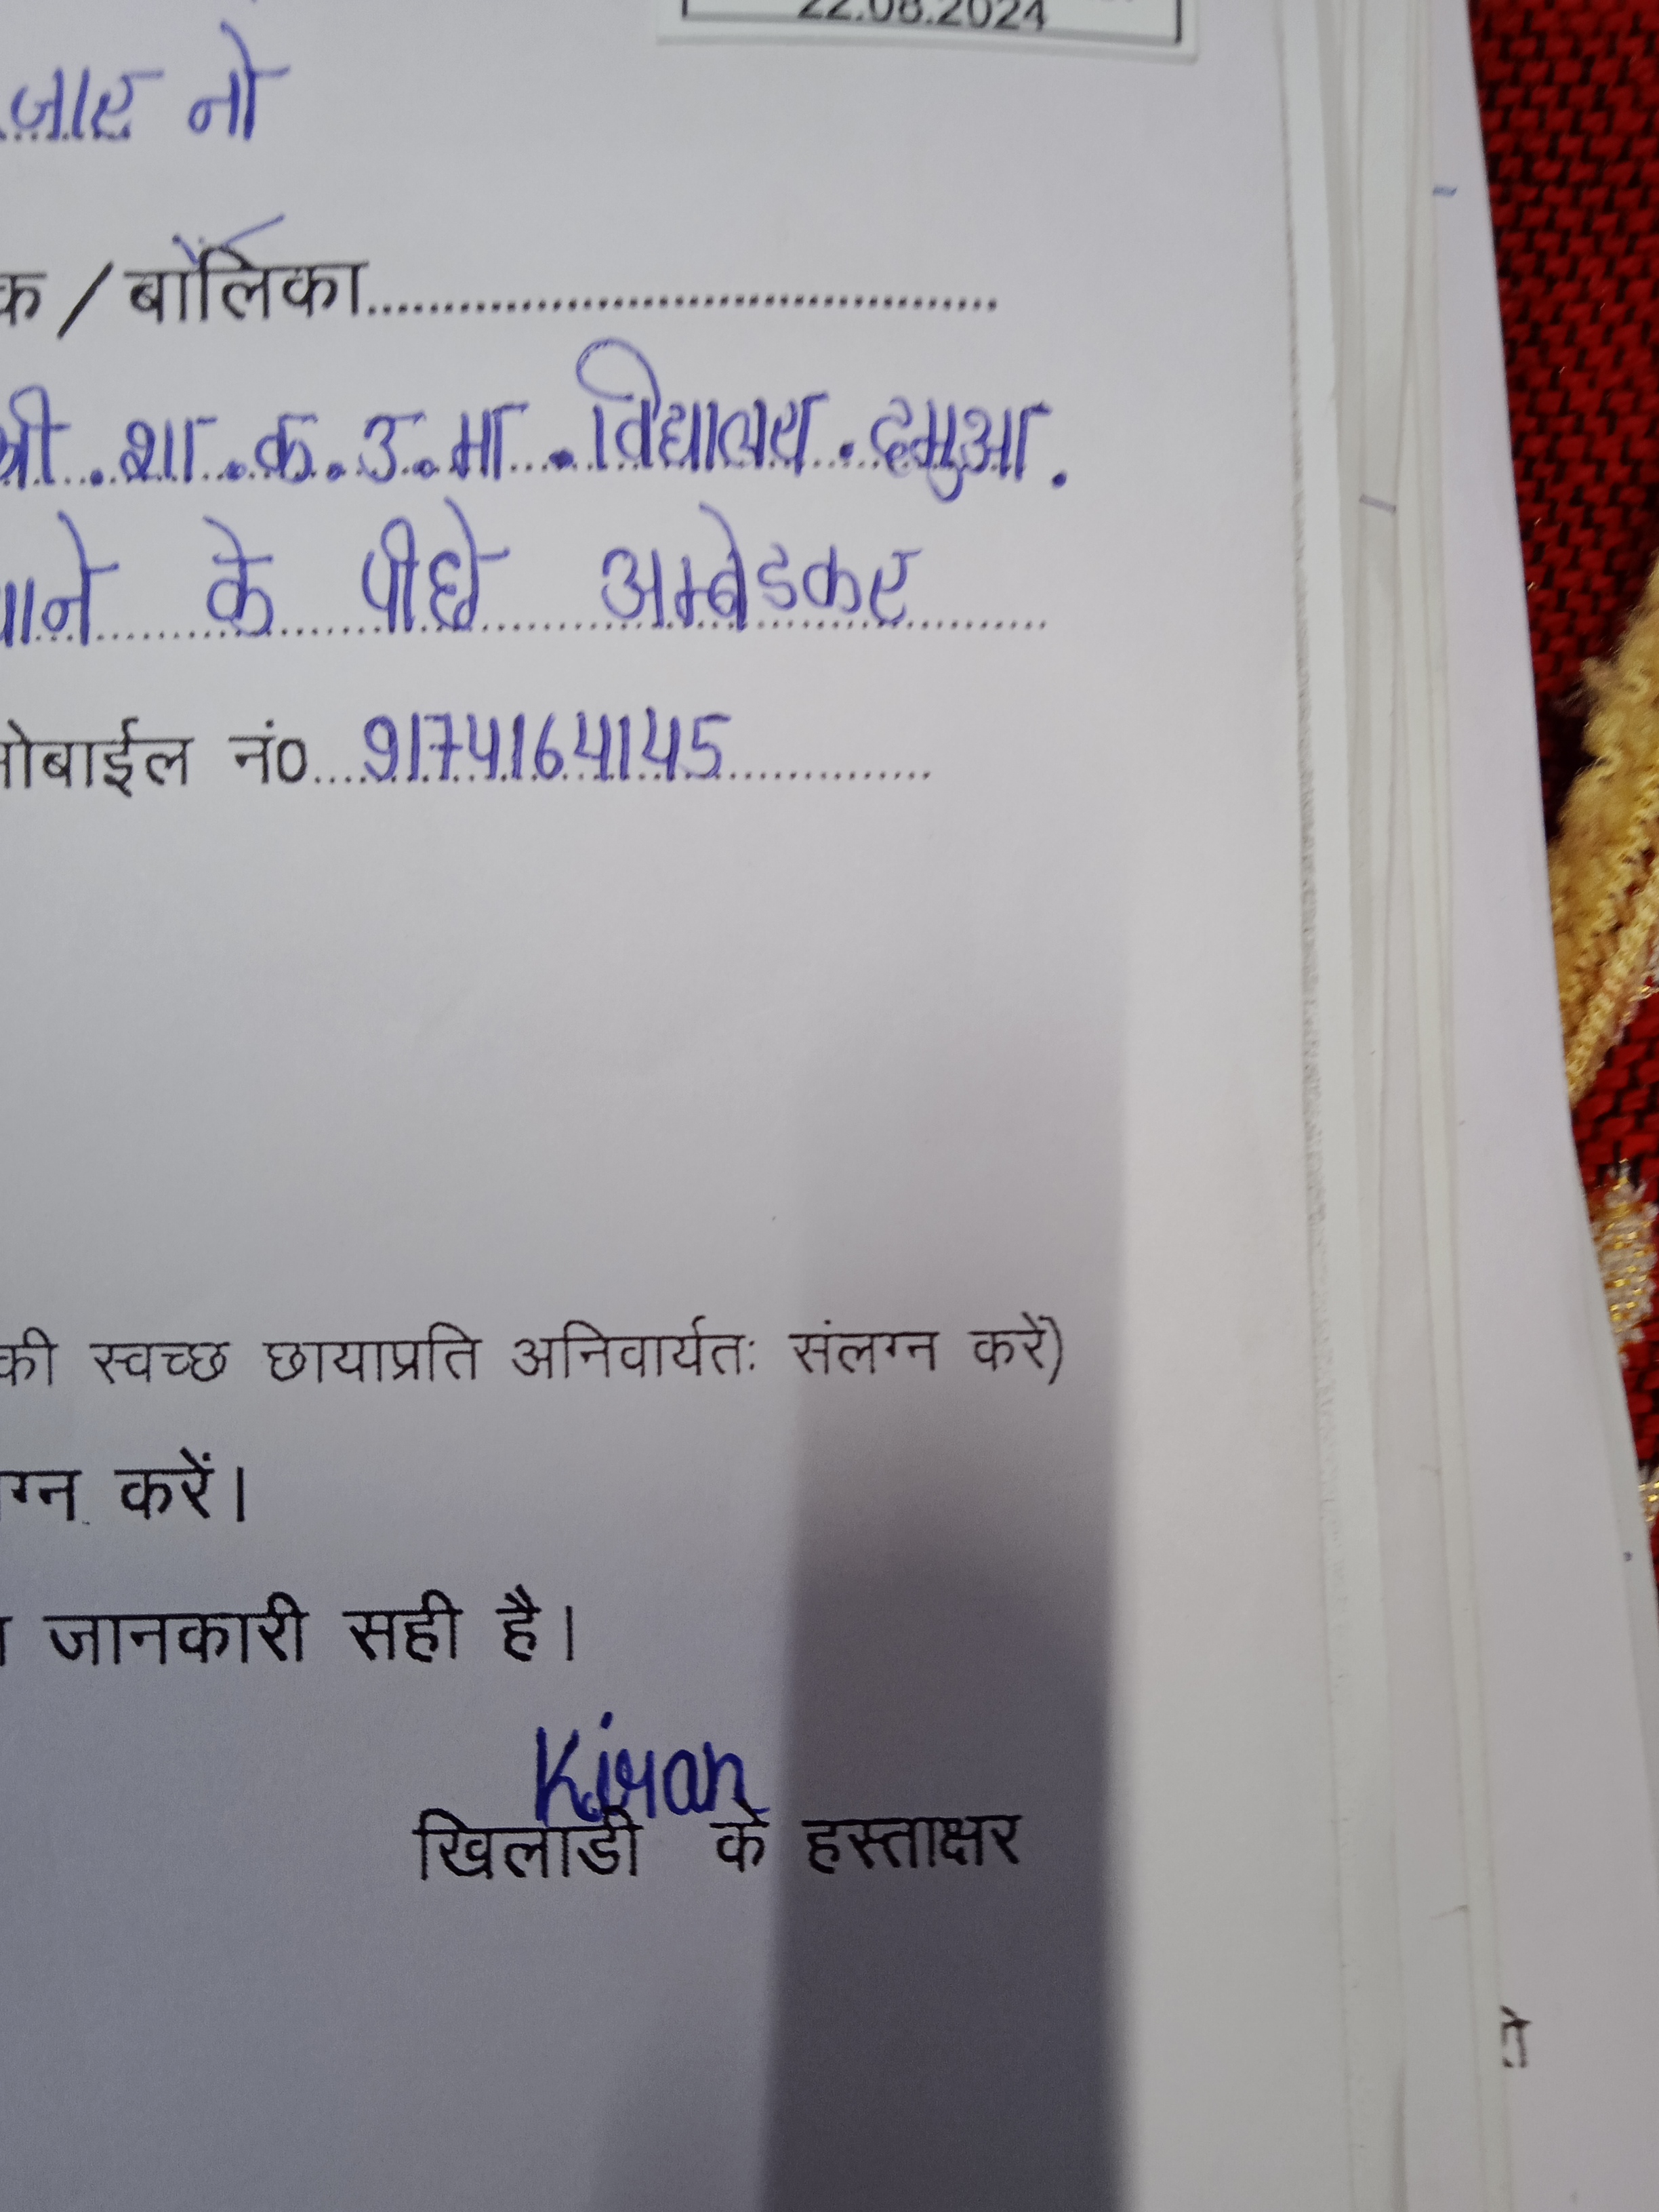 22.08.2024
जार नो
क / बालिका
श्री. शा. क. उ. मा. विद्यालय. दमुआ.
के पीछे अम्बेडकर
मोबाईल नं० 9174164145
की स्वच्छ छायाप्रति अनिवार्यतः संलग्न करें)
ग्न करें।
जानकारी सही है।
Kiran
खिलाडी के हस्ताक्षर